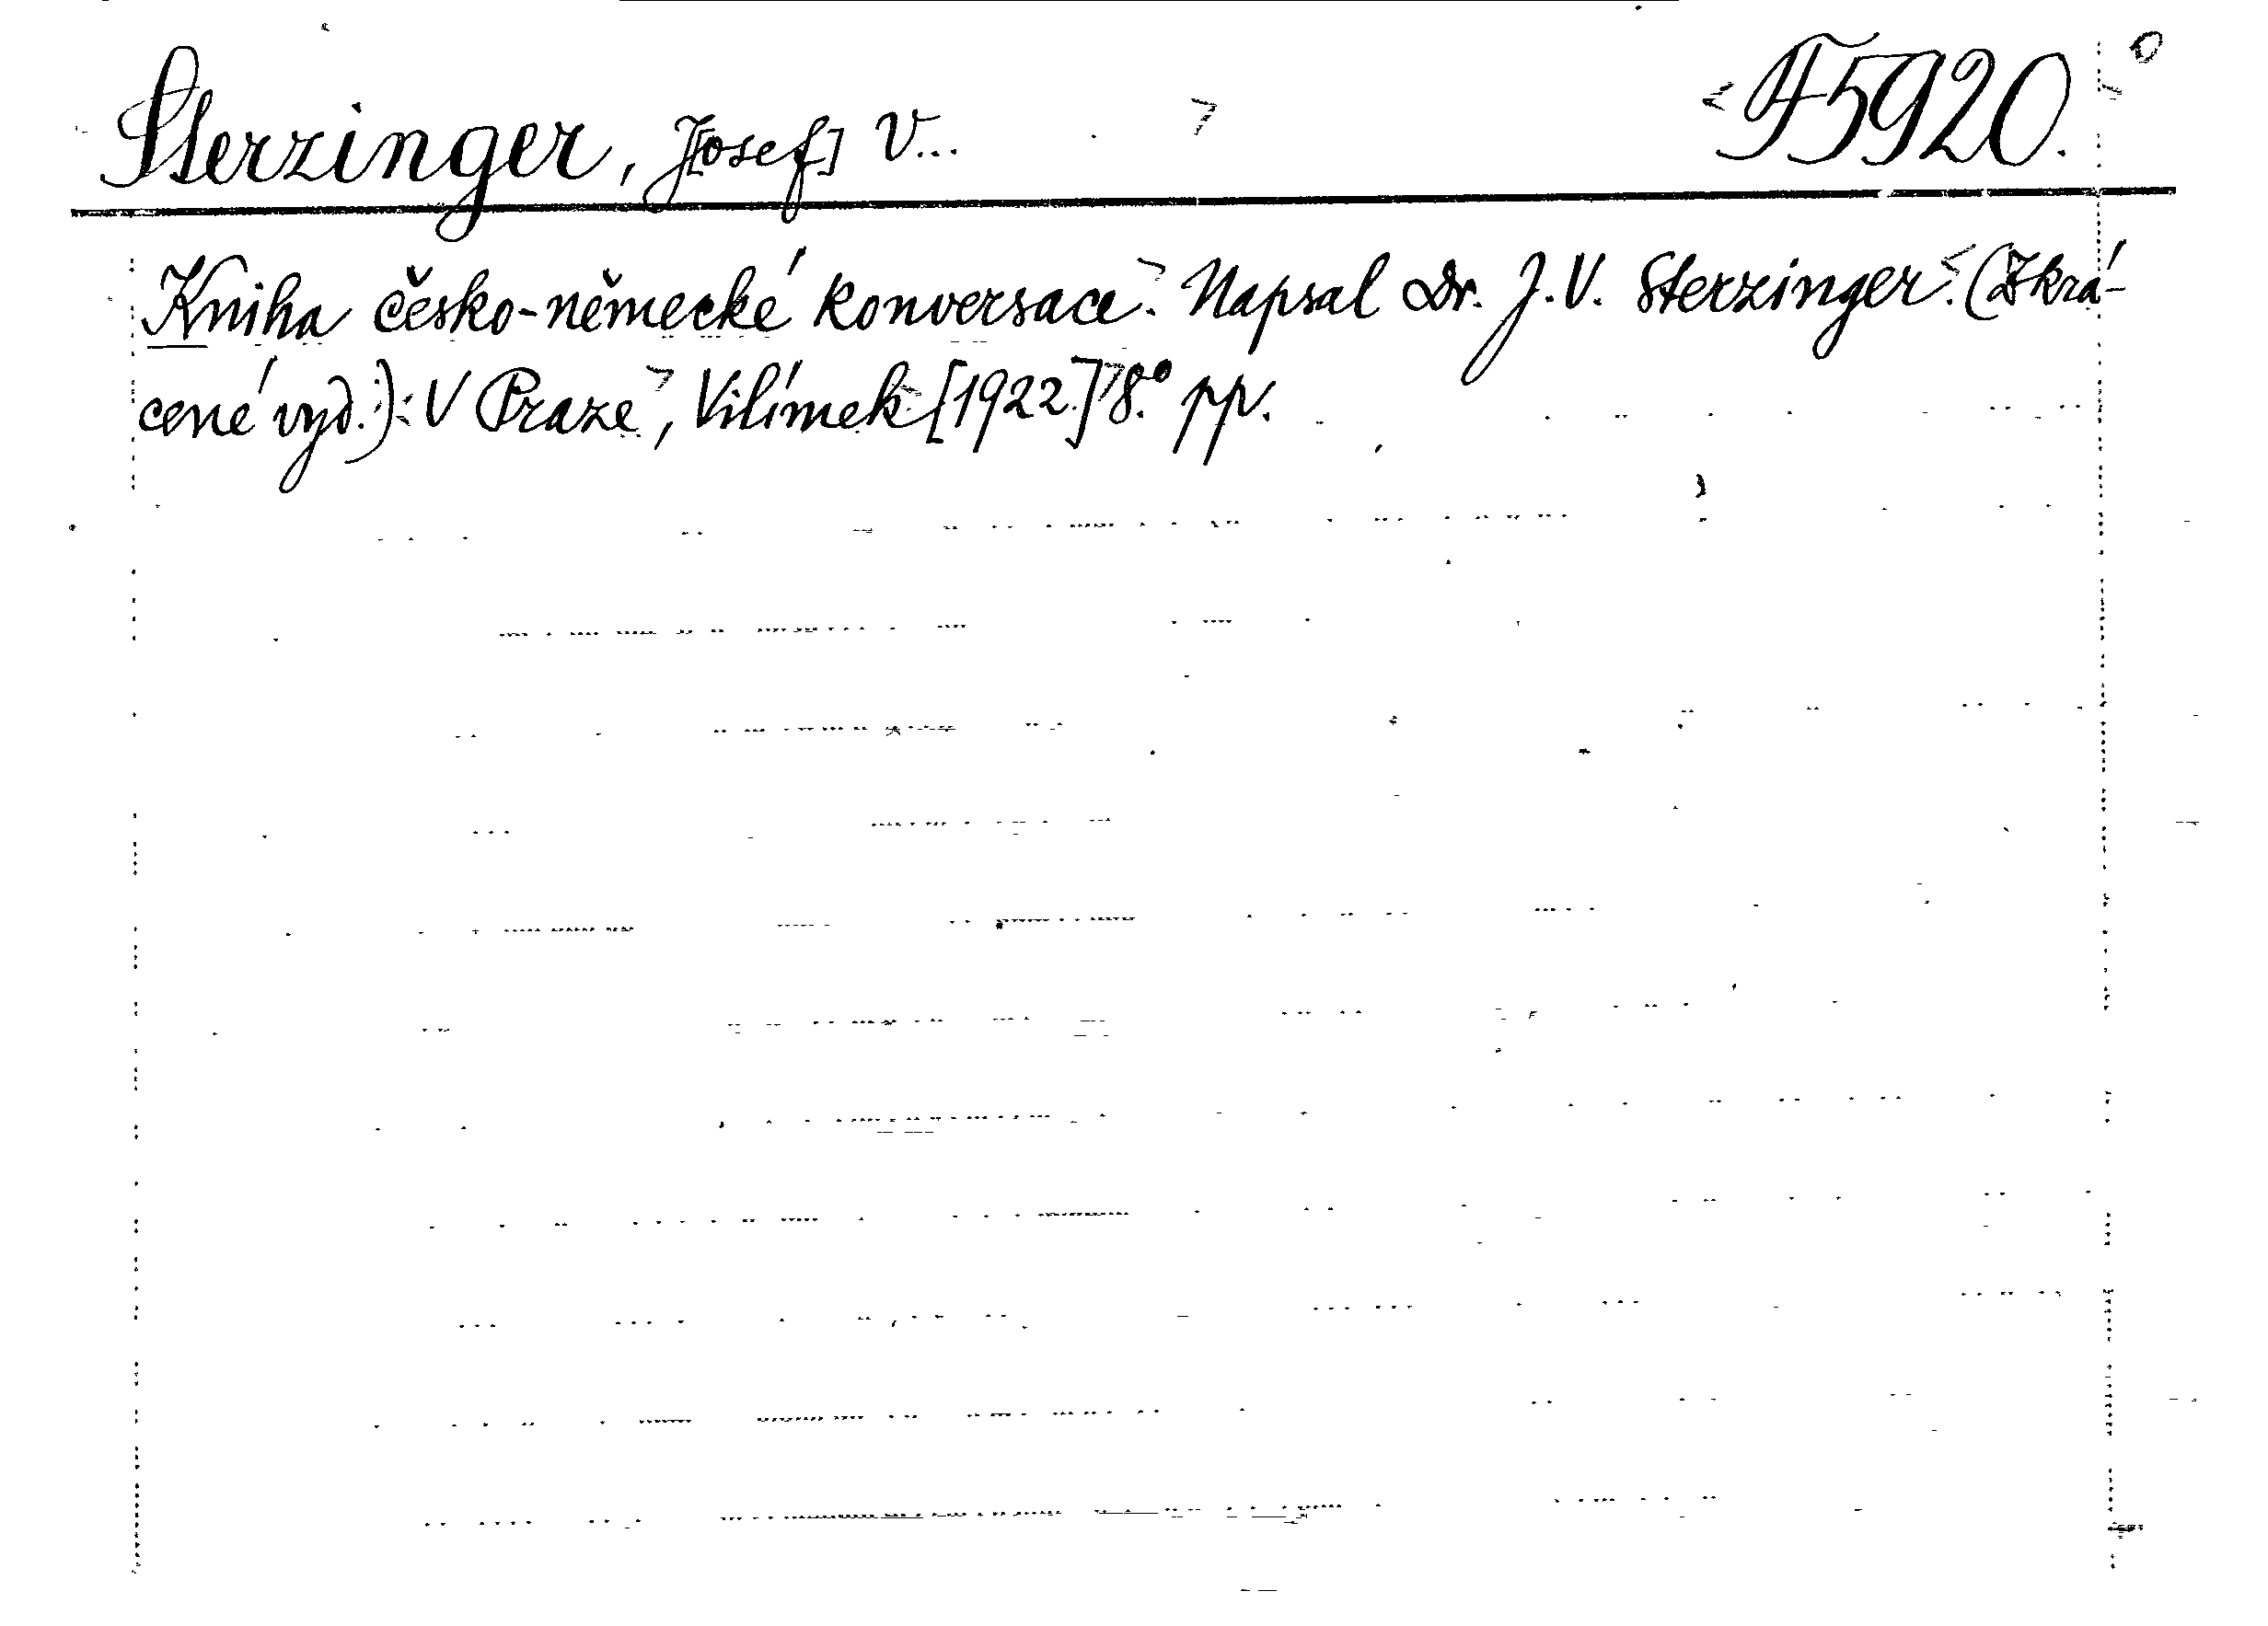 Sterzinger, J[osef] V... F 5920.
Kniha česko-německé konversace. Napsal Dr. J. V. Sterzinger. (Zkrá-
cené vyd.). V Praze, Vilímek [1922.] 8.° pp.